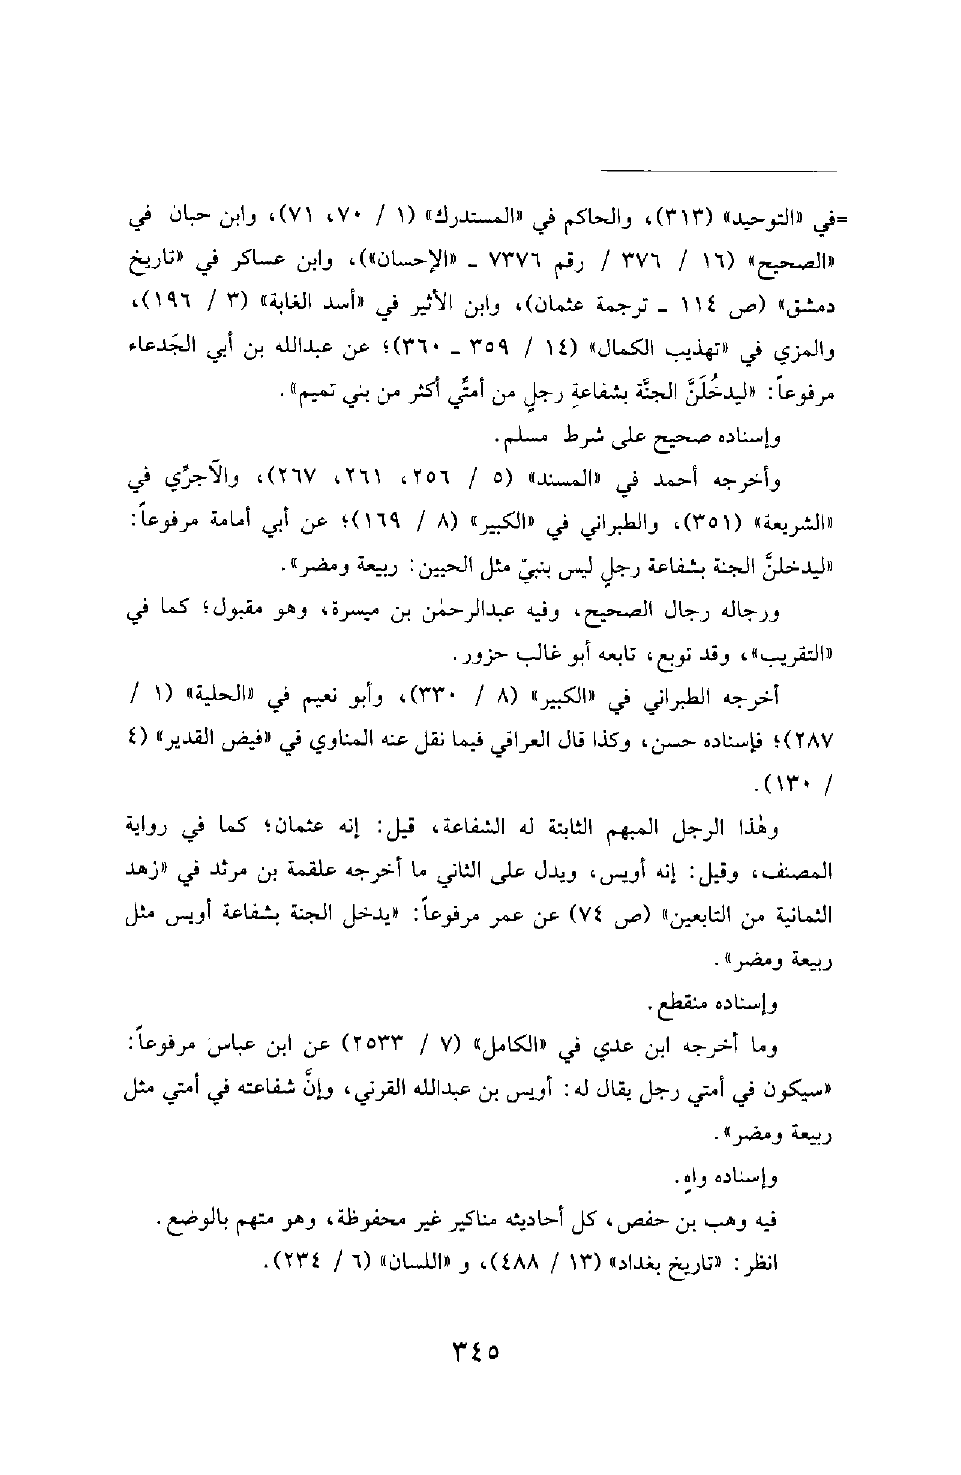 =في «التوحيد» (٣١٣)، والحاكم في «المستدرك» (١ / ٧٠، ٧١)، وابن حبان في
«الصحيح» (١٦ / ٣٧٦ / رقم ٧٣٧٦ ـ «الإحسان»)، وابن عساكر في «تاريخ
دمشق» (ص ١١٤ ـ ترجمة عثمان)، وابن الأثير في «أسد الغابة» (٣ / ١٩٦)،
والمزي في «تهذيب الكمال» (١٤ / ٣٥٩ ـ ٣٦٠)؛ عن عبدالله بن أبي الجَدعاء
مرفوعاً: «ليدخُلَنَّ الجنَّة بشفاعةِ رجلٍ من أمتَّي أكثر من بني تميم».
وإسناده صحيح على شرط مسلم.
وأخرجه أحمد في «المسند» (٥ / ٢٥٦، ٢٦١، ٢٦٧)، والآجرِّي في
«الشريعة» (٣٥١)، والطبراني في «الكبير» (٨ / ١٦٩)؛ عن أبي أمامة مرفوعاً:
«ليدخلنَّ الجنة بشفاعة رجلٍ ليس بنبيّ مثل الحيين: ربيعة ومضر».
ورجاله رجال الصحيح، وفيه عبدالرحمٰن بن ميسرة، وهو مقبول؛ كما في
«التقريب»، وقد توبع، تابعه أبو غالب حزور.
أخرجه الطبراني في «الكبير» (٨ / ٣٣٠)، وأبو نعيم في «الحلية» (١ /
٢٨٧)؛ فإسناده حسن، وكذا قال العراقي فيما نقل عنه المناوي في «فيض القدير» (٤
/ ١٣٠).
وهٰذا الرجل المبهم الثابتة له الشفاعة، قيل: إنه عثمان؛ كما في رواية
المصنف، وقيل: إنه أويس، ويدل على الثاني ما أخرجه علقمة بن مرثد في «زهد
الثمانية من التابعين» (ص ٧٤) عن عمر مرفوعاً: «يدخل الجنة بشفاعة أويس مثل
ربيعة ومضر».
وإسناده منقطع.
وما أخرجه ابن عدي في «الكامل» (٧ / ٢٥٣٣) عن ابن عباس مرفوعاً:
«سيكون في أمتي رجل يقال له: أويس بن عبدالله القرني، وإنَّ شفاعته في أمتي مثل
ربيعة ومضر».
وإسناده واهٍ.
فيه وهب بن حفص، كل أحاديثه مناكير غير محفوظة، وهو متهم بالوضع.
انظر: «تاريخ بغداد» (١٣ / ٤٨٨)، و «اللسان» (٦ / ٢٣٤).
٣٤٥